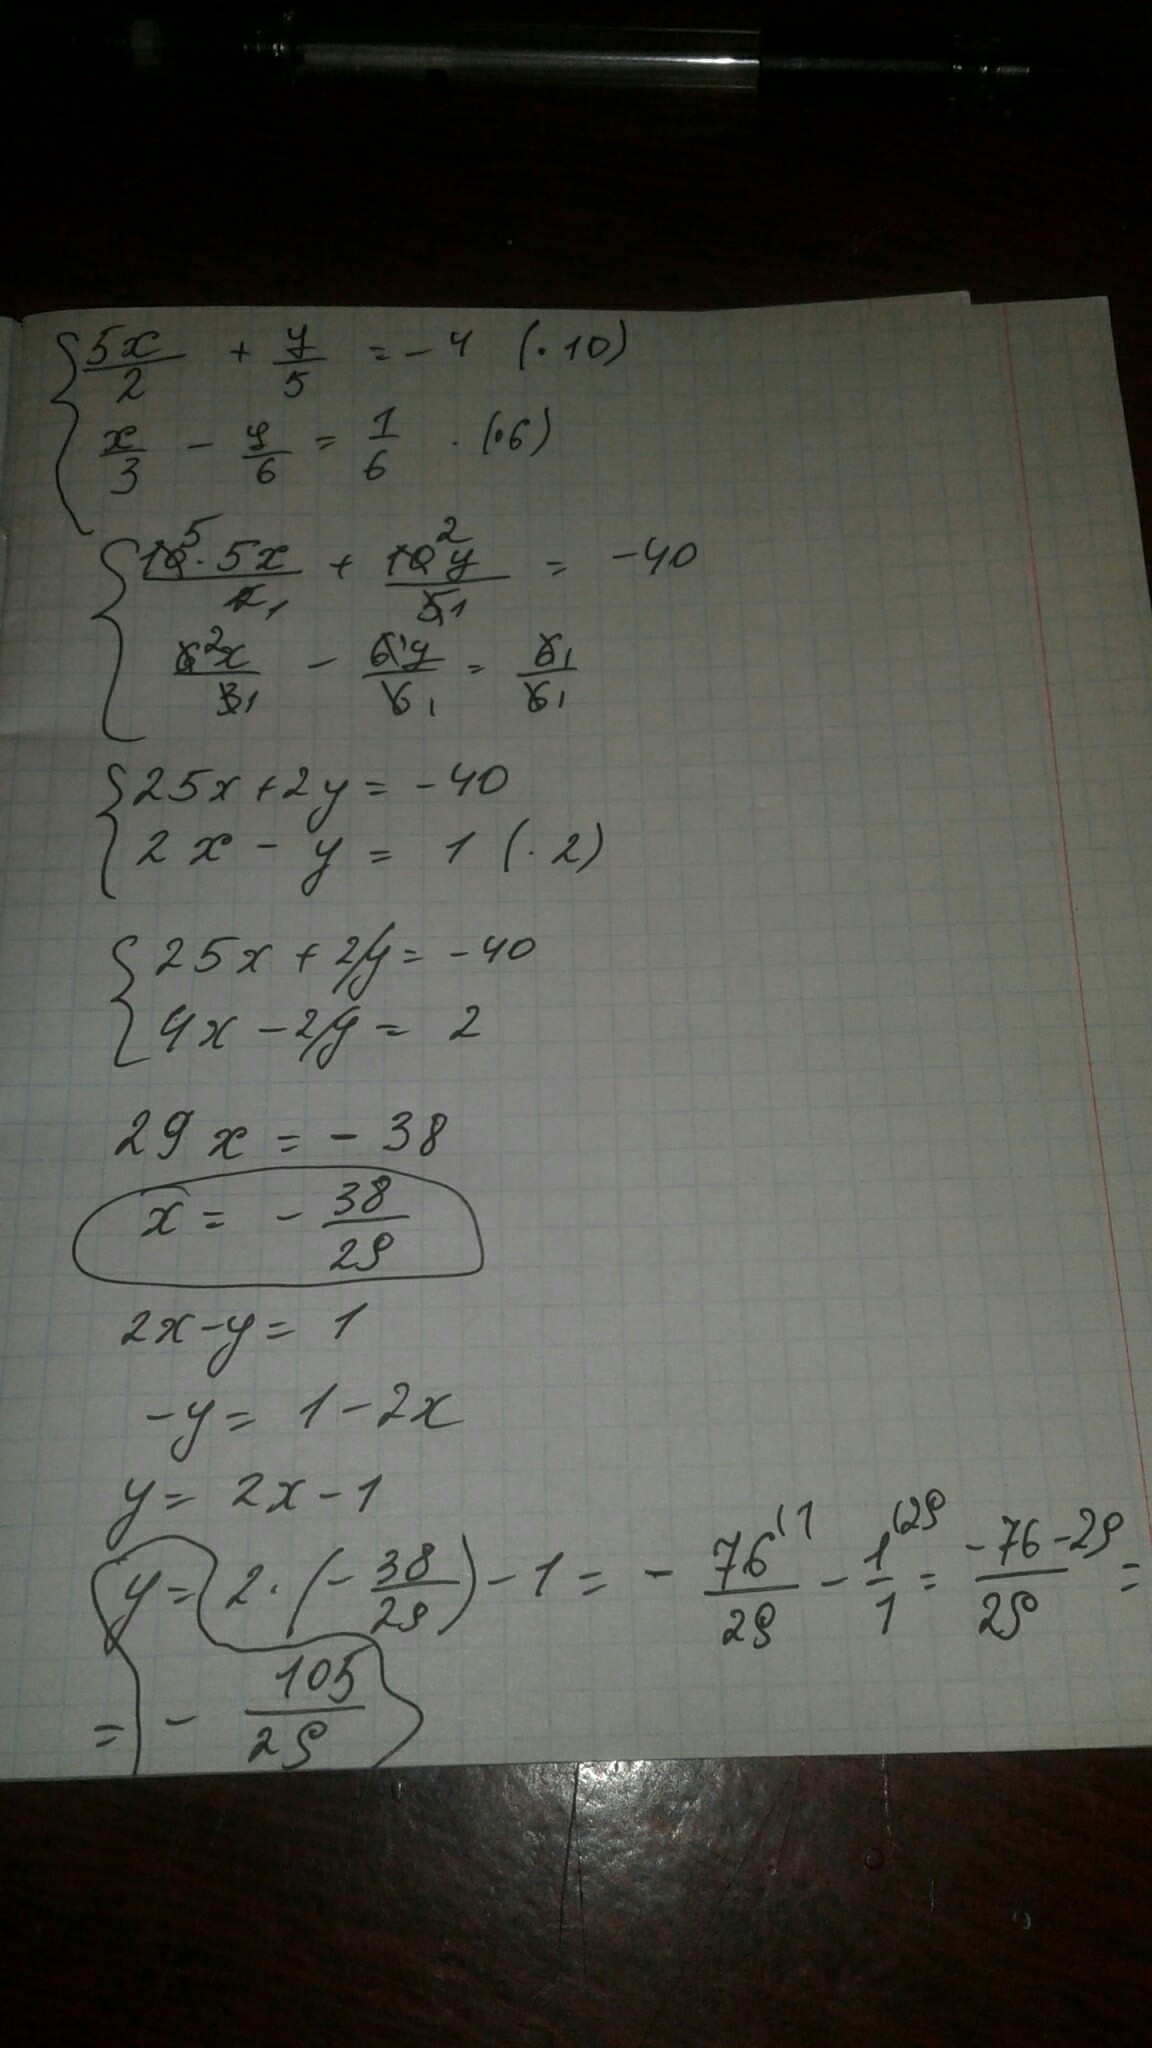 5x/2 + y/5 = -4 (·10)
x/3 - y/6 = 1/6 · (·6)
10 5 · 5x / 2 1 + 10 2 y / 5 1 = -40
6 2 x / 3 1 - 6 1 y / 6 1 = 6 1 / 6 1
25x + 2y = -40
2x - y = 1 (·2)
25x + 2y = -40
4x - 2y = 2
29x = -38
x = -38/29
2x - y = 1
-y = 1 - 2x
y = 2x - 1
y = 2·(-38/29) - 1 = -76 (1 / 29 - 1 (29 / 1 = -76-29/29 =
= -105/29